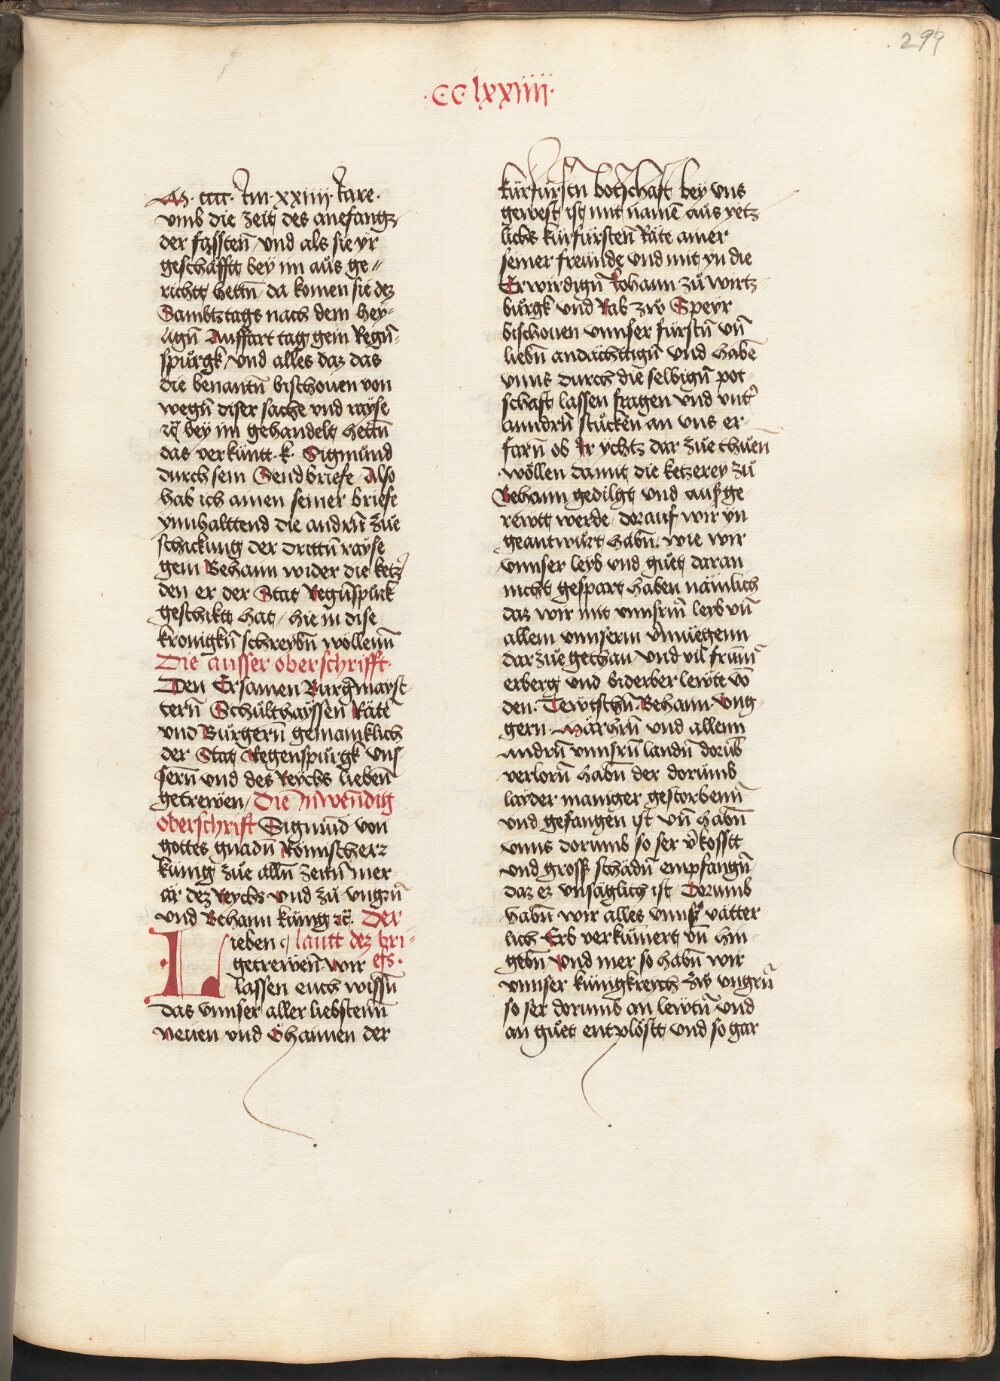 299
·CClxxiiij·
M · cccc · Im · xxiiij · Jare ·
vmb die zeit des anefangz
der fassten / vnd als sie yr
geschäfft bey im aus ge⸗
richtt hettn̄ / da komen sie dez
Sambtztags nach dem hey⸗
lign̄ Auffart tag gein Regn̄⸗
spürgk / vnd alles daz das
die benantn̄ bischouen von
wegn̄ diser sache vnd rayse
ꝛc̄ bey im gehandelt hettn̄
das verkünt · k · Sigmünd
durch sein Sendbriefe / Also
hab ich ainen seiner briefe
ynnhalttend die andrn̄ zue
schickung der drittn̄ rayse
gein Behann wider die ketz̾
den er der Stat Regn̄spurk
geschikt hat / hie in dise
kronigkn̄ schreybn̄ wollenn̄
Die ausser oberschrifft ·
Den Ersamen Burg̾mayst⸗
tern̄ Schulthayssen Räte
vnd Bürgern gemainklich
der Stat Regenspürgk vns⸗
sern̄ vnd des Reychs liebenn
getrewen / Die Inwendig
oberschrift Sigmund von
gottes gnadn̄ Römischerr
künig zue alln̄ zeitn̄ mer⸗
ār dez Reychs vnd zu vngrn̄
vnd Behann küng ꝛc̄. Der
Lieben lautt dez bri⸗
getrewen Wir efs ·
lassen euch wissn̄
das vnnser aller liebstenn̄
Neuen vnd Öhaimen der
kürfürstn botschaft bey vns
gewest ist mit namē aus yetz
lichs kürfürsten Räte ainer
seiner freunde vnd mit yn die
Erwirdign̄ Johann zu wirtz⸗
burgk vnd Rab zw Speyr
bischouen vnnser fürstn̄ vn̄
liebn̄ andächttign̄ vnd habē
vnns durch die selbign̄ pot⸗
schaft lassen fragen vnd vnt̾
anndrn̄ stücken an vns er⸗
farn̄ ob Ir ychtz dar zue thuen
wöllen damit die ketzerey zu
Behann gedilgt vnd ausge
rewtt werde / dorauf wir yn
geantwürt habn̄. wie wir
vnnser leyb vnd guet daran
nicht gespart haben nämlich
daz wir mit vnnsrm̄ leyb vn̄
allem vnnserm v̾müegenn
dar zue gethan vnd vil frum̄
erberg vnd biderber lewte vō
den Tewtschn̄ Behann vng⸗
gern Märhrn̄ vnd allenn
andrn̄ vnnsrn̄ landn̄ dorūb
verlorn̄ habn̄ der dorümb
layder maniger gestorbenn̄
vnd gefangen ist vn̄ habn̄
vnns dorumb so ser v̾kosstt
vnd gross schädn̄ empfangn̄
daz ez vnsäglich ist Dorumb
habn̄ wir alles vnns̾ vätter
lich Erb verkümert vn̄ hin⸗
gebn̄ Vnd mer so habn̄ wir
vnnser künigkreych zw vngrn̄
so ser dorumb an lewtn̄ vnd
an guet entplöstt vnd so gar